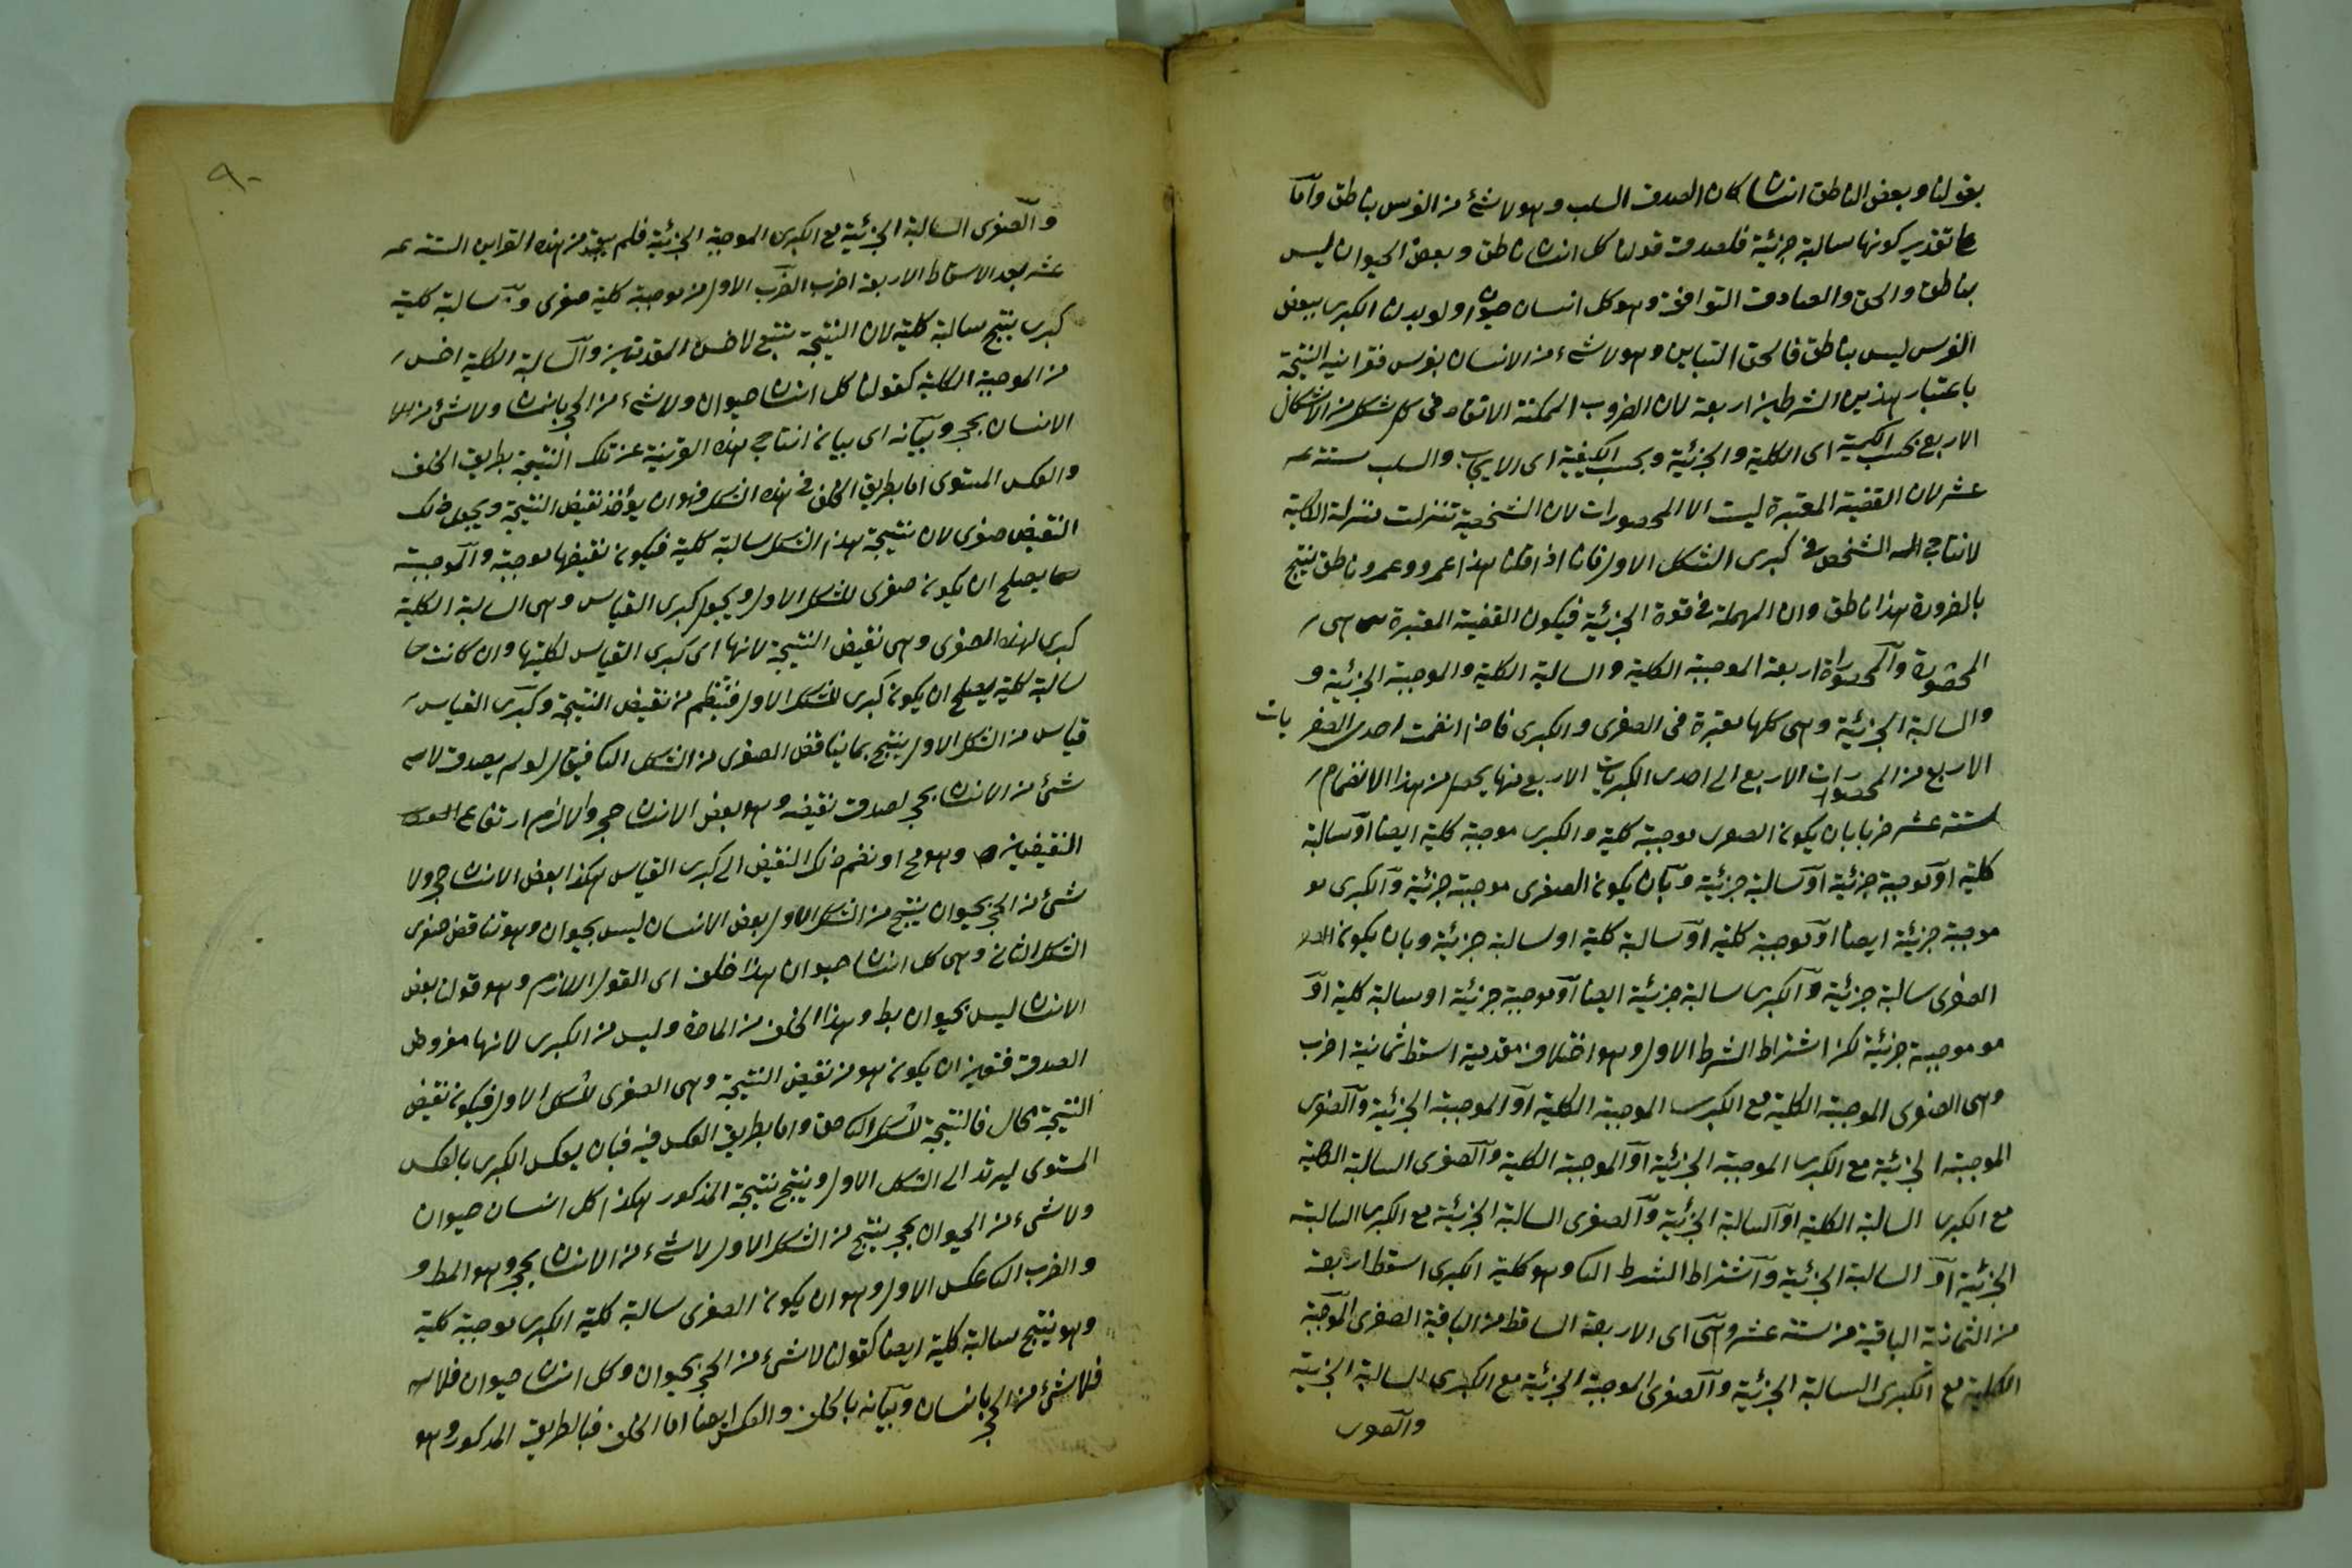 بقولنا وبعض الناطق انسان كان الصدق السلب وهو لا شئ من الفرس بناطق واما
على تقدير كونها سالبة جزئية فلصدق قولنا كل انسان ناطق وبعض الحيوان ليس
بناطق والحق والصادق التوافق وهو كل انسان حيوان ولو بدلنا الكبرى ببعض
الفرس ليس بناطق فالحق التباين وهو لا شئ من الانسان بفرس فقرانيه النتيجة
باعتبار هذين الشرطين اربعة لان الضروب الممكنة الاتقاد فى كل شكل من الاشكال
الاربع بحسب الكمية اى الكلية والجزئية وبحسب الكيفية اى الايجاب والسلب ستة
عشر لان القضية المعتبرة ليست الا المحصورات لان الشخصية تنزلت منزلة الكلية
لانتاج الشخص فى كبرى الشكل الاول فانا اذا قلنا هذا عمرو وعمرو ناطق ينتج
بالضرورة هذا ناطق وان المهملة فى قوة الجزئية فيكون القضية المعتبرة هى
المحصورة والمحصوراة اربعة الموجبة الكلية والسالبة الكلية والموجبة الجزئية و
والسالبة الجزئية وهى كلها معتبرة فى الصغرى والكبرى فاذا انضمت احدى الصغريات
الاربع من المحصورات الاربع الى احدى الكبريات الاربع منها يحصل من هذا الانضمام
ستة عشر ضربا بان يكون الصغرى موجبة كلية والكبرى موجبة كلية ايضا او سالبة
كلية او موجبة جزئية او سالبة جزئية وبان يكون الصغرى موجبة جزئية والكبرى مو
موجبة جزئية ايضا او موجبة كلية او سالبة كلية او سالبة جزئية وبان يكون
الصغرى سالبة جزئية والكبرى سالبة جزئية ايضا او موجبة جزئية او سالبة كلية او
مو موجبة جزئية لكن اشتراط الشرط الاول وهو اختلاف مقدمية اسقط ثمانية اضرب
وهى الصغرى الموجبة الكلية مع الكبرى الموجبة الكلية او الموجبة الجزئية والصغرى
الموجبة الجزئية مع الكبرى الموجبة الجزئية او الموجبة الكلية والصغرى السالبة الكلية
مع الكبرى السالبة الكلية او السالبة الجزئية والصغرى السالبة الجزئية مع الكبرى السالبة
الجزئية او السالبة الجزئية واشتراط الشرط الثا وهو كلية الكبرى اسقط اربعة
من الثمانية الباقية من ستة عشر وهى اى الاربعة الساقط من الباقية الصغرى الموجبة
الكلية مع الكبرى السالبة الجزئية والصغرى الموجبة الجزئية مع الكبرى السالبة الجزئية
والصغرى
٩٠
والصغرى السالبة الجزئية مع الكبرى الموجبة الجزئية فلم يبق من هذه القراين الستة
عشر بعد الاسقاط الا اربعة اضرب الضرب الاول من موجبة كلية صغرى وسالبة كلية
كبرى ينتج سالبة كلية لان النتيجة تتبع لاخس المقدمتين والسالبة الكلية اخس
من الموجبة الكلية كقولنا كل انسان حيوان ولا شئ من الحجر بانسان ولا شئ من
الانسان بحجر وبيانه اى بيان انتاج هذه القرينة عن تلك النتيجة بطريق الخلف
والعكس المستوى اما بطريق الخلف فى هذه الشكل فهو ان يؤخذ نقيض النتيجة ويجعل ذلك
النقيض صغرى لان نتيجة هذا الشكل سالبة كلية فيكون نقيضها موجبة والموجبة
يصلح ان يكون صغرى للشكل الاول ويجعل كبرى القياس وهى السالبة الكلية
كبرى لهذه الصغرى وهى نقيض النتيجة لانها اى كبرى القياس لكليتها وان كانت
سالبة كلية يصلح ان يكون كبرى للشكل الاول فينتظم من نقيض النتيجة وكبرى القياس
قياس من الشكل الاول ينتج بما يناقض الصغرى من الشكل الثا فيقال لو لم يصدق لا
شئ من الانسان بحجر لصدق نقيضه وهو بعض الانسان حجر والا لزم ارتفاع
النقيضين وهو مح او نضم ذلك النقيض الى كبرى القياس هكذا بعض الانسان حجر ولا
شئ من الحجر بحيوان ينتج من الشكل الاول بعض الانسان ليس بحيوان وهو تناقض صغرى
الشكل الثانى وهى كل انسان حيوان هذا خلف اى القول اللازم وهو قولنا بعض
الانسان ليس بحيوان بط وهذا الخلف من المادة وليس من الكبرى لانها مفروض
الصدق فتعين ان يكون هو من نقيض النتيجة وهى الصغرى للشكل الاول فيكون نقيض
النتيجة محال فالنتيجة للشكل الثا حق واما بطريق العكس فيه فبان يعكس الكبرى بالعكس
المستوى ليرتد الى الشكل الاول وينتج نتيجة المذكور هكذا كل انسان حيوان
ولا شئ من الحيوان بحجر ينتج من الشكل الاول لا شئ من الانسان بحجر وهو المط و
والضرب الثا عكس الاول وهو ان يكون الصغرى سالبة كلية الكبرى موجبة كلية
وهو ينتج سالبة كلية ايضا كقولنا لا شئ من الحجر بحيوان وكل انسان حيوان
فلا شئ من الحجر بانسان وبيانه بالخلف والعكس ايضا اما الخلف فبالطريق المذكور وهو